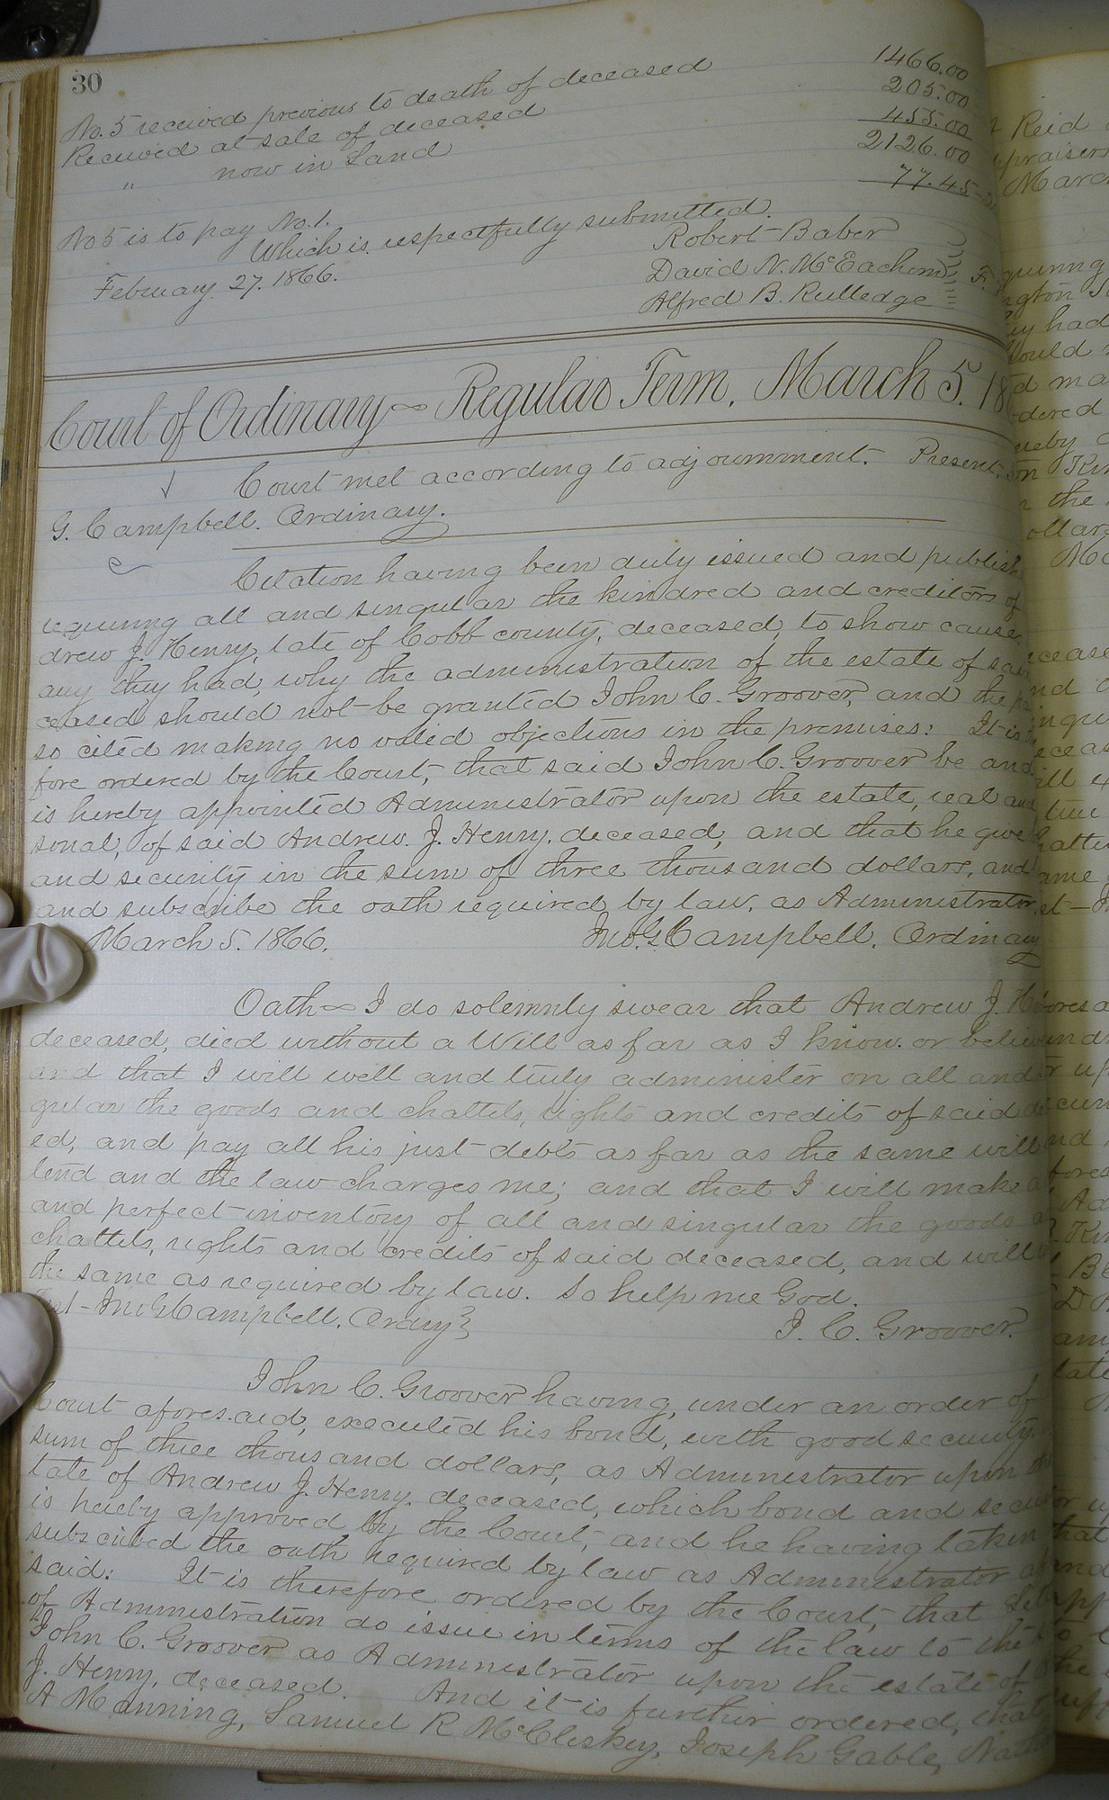 30
No. 5 received previous to death of deceased 1466.00
Received at sale of deceased 205.00
" now in Land 455.00
2126.00
No 5 is to pay No. 1. 77.45
Which is respectfully submitted.
February 27. 1866. Robert Baber
David N. McEachern
Alfred B. Rutledge
Court of Ordinary Regular Term, March 5. 18
Court met according to adjournment. Present,
G. Campbell. Ordinary.
Citation having been duly issued and publish
requiring all and singular the kindred and creditors of
drew J. Henry, late of Cobb county, deceased, to show cause
any they had, why the administration of the estate of said
ceased should not be granted John C. Groover, and the
so cited making no valid objections in the premises: It is
fore ordered by the Court, that said John C. Groover be and
is hereby appointed Administrator upon the estate, real and
sonal, of said Andrew J. Henry, deceased, and that he give
and security in the sum of three thousand dollars, and
and subscribe the oath required by law, as Administrator
March 5. 1866. Jno. G. Campbell. Ordinary
Oath I do solemnly swear that Andrew J. H
deceased, died without a Will as far as I know or believe
and that I will well and truly administer on all and
gular the goods and chattels, rights and credits of said de
ed, and pay all his just debts as far as the same will
tend and the law charges me; and that I will make a
and perfect inventory of all and singular the goods a
chattels, rights and credits of said deceased, and will
the same as required by law. So help me God.
Jno G Campbell. Ordny J. C. Groover
John C. Groover having, under an order of
Court aforesaid, executed his bond, with good security
sum of three thousand dollars, as Administrator upon the
tate of Andrew J. Henry, deceased, which bond and secur
is hereby approved by the Court, and he having taken
subscribed the oath required by law as Administrator a
said: It is therefore ordered by the Court, that Let
of Administration do issue in terms of the law to the
John C. Groover as Administrator upon the estate of
J. Henry, deceased. And it is further ordered, that
A Manning, Samuel R McCleskey, Joseph Gable,